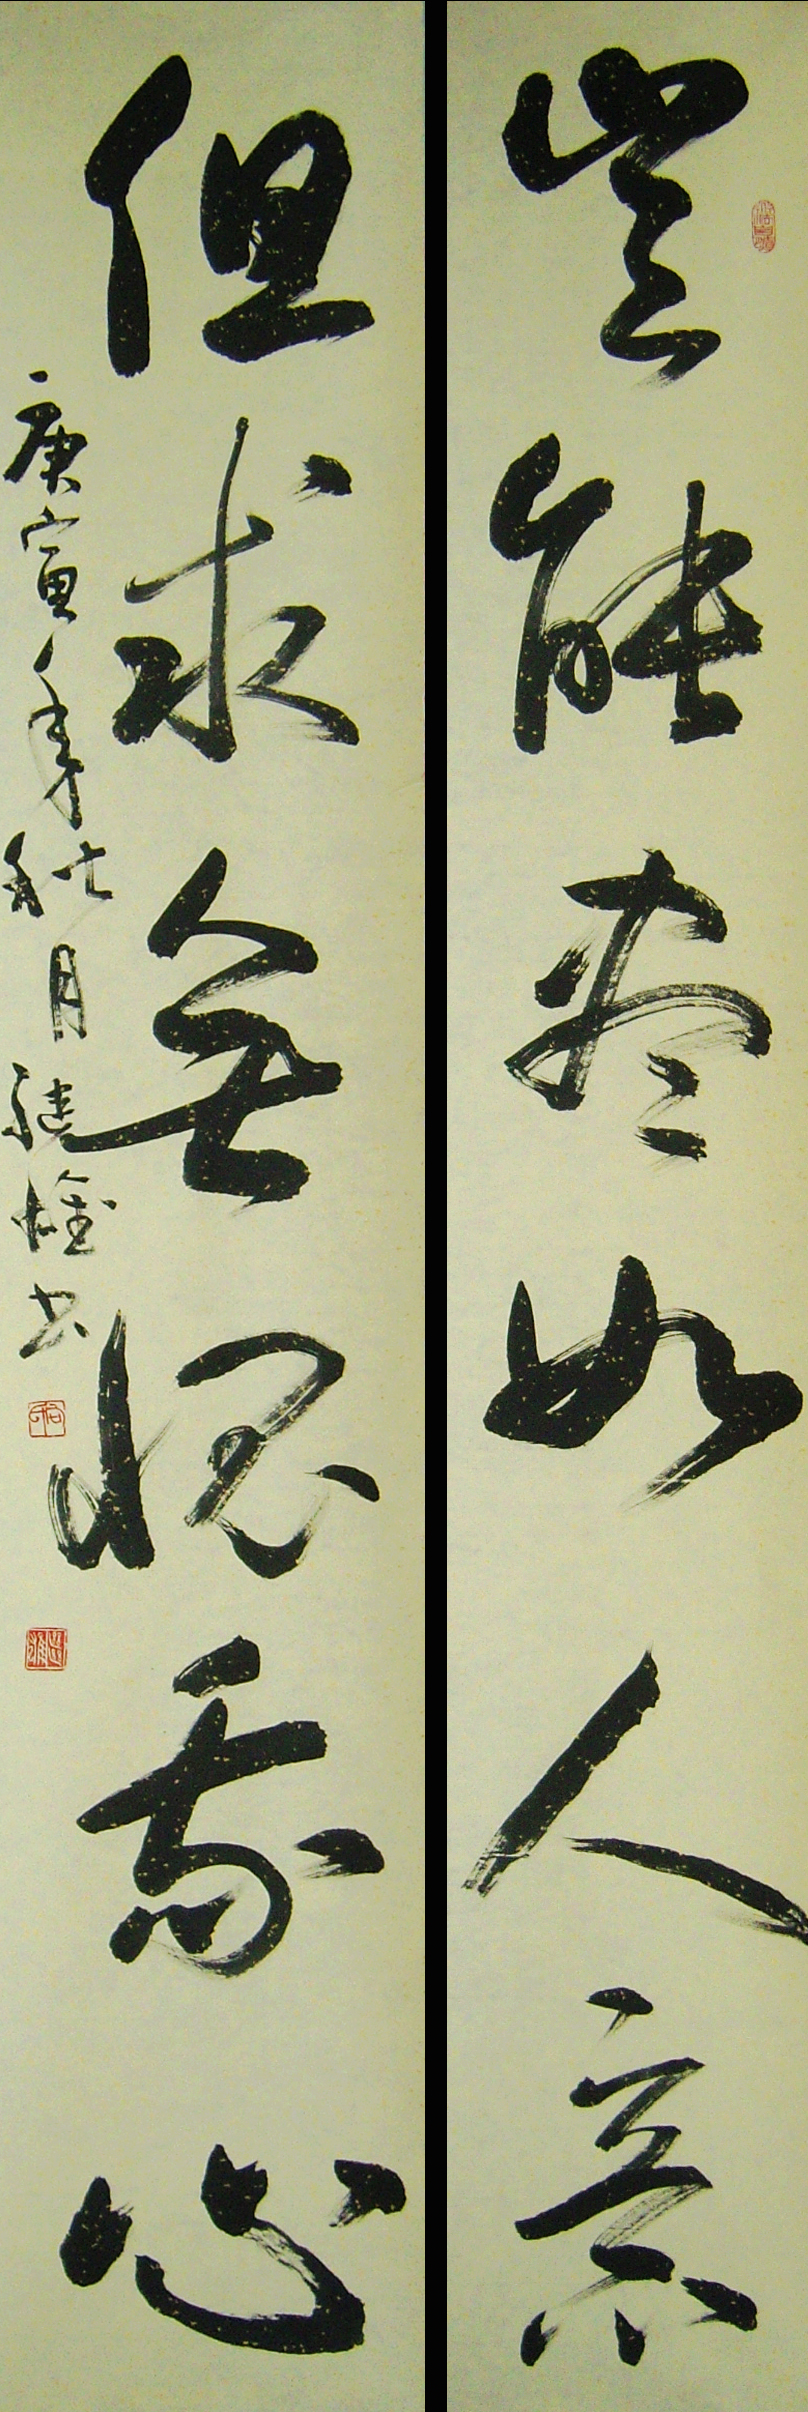 豈能盡如人意
但求無愧我心
庚寅年秋月書